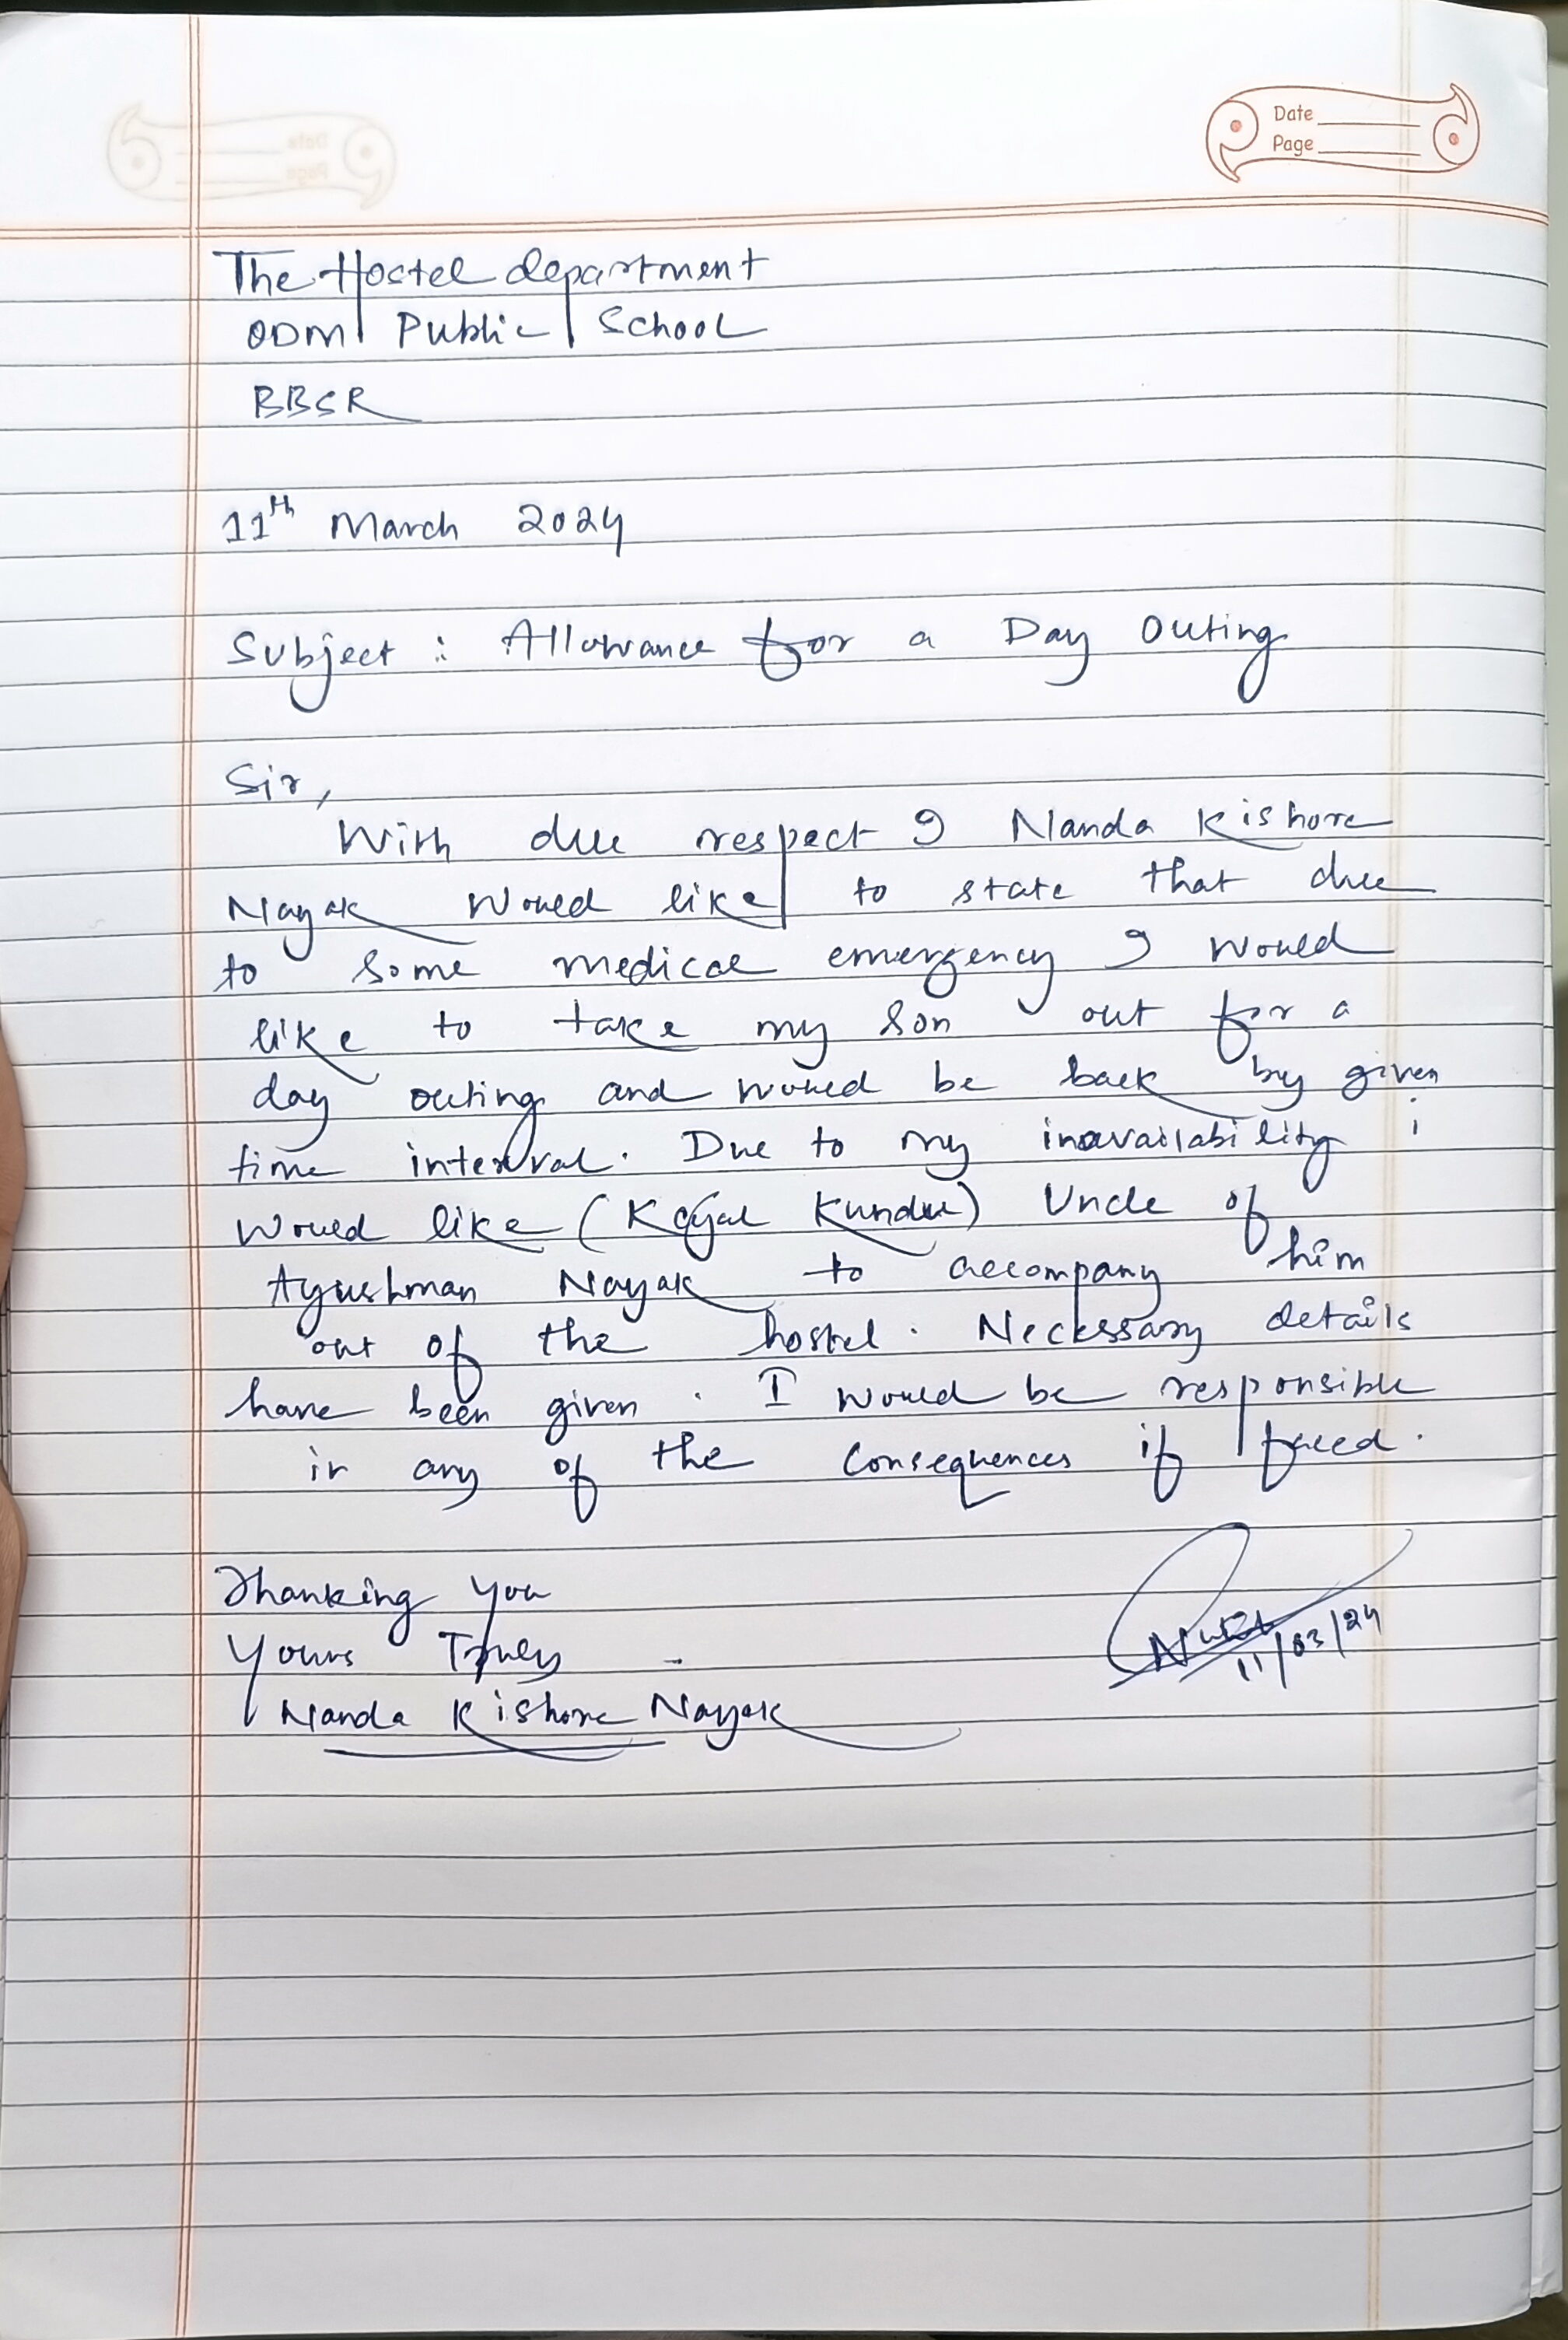 Date
Page
The Hostel department
ODM Public School
BBSR
11th March 2024
Subject : Allowance for a Day Outing
Sir,
With due respect I Nanda Kishore
Nayak would like to state that due
to some medical emergency I would
like to take my son out for a
day outing and would be back by given
time interval. Due to my inavailability i
would like (Kajal Kundu) Uncle of
Ayushman Nayak to accompany him
out of the hostel. Necessary details
have been given. I would be responsible
in any of the consequences if faced.
Thanking you
Yours Truly
Nanda Kishore Nayak
11/03/24